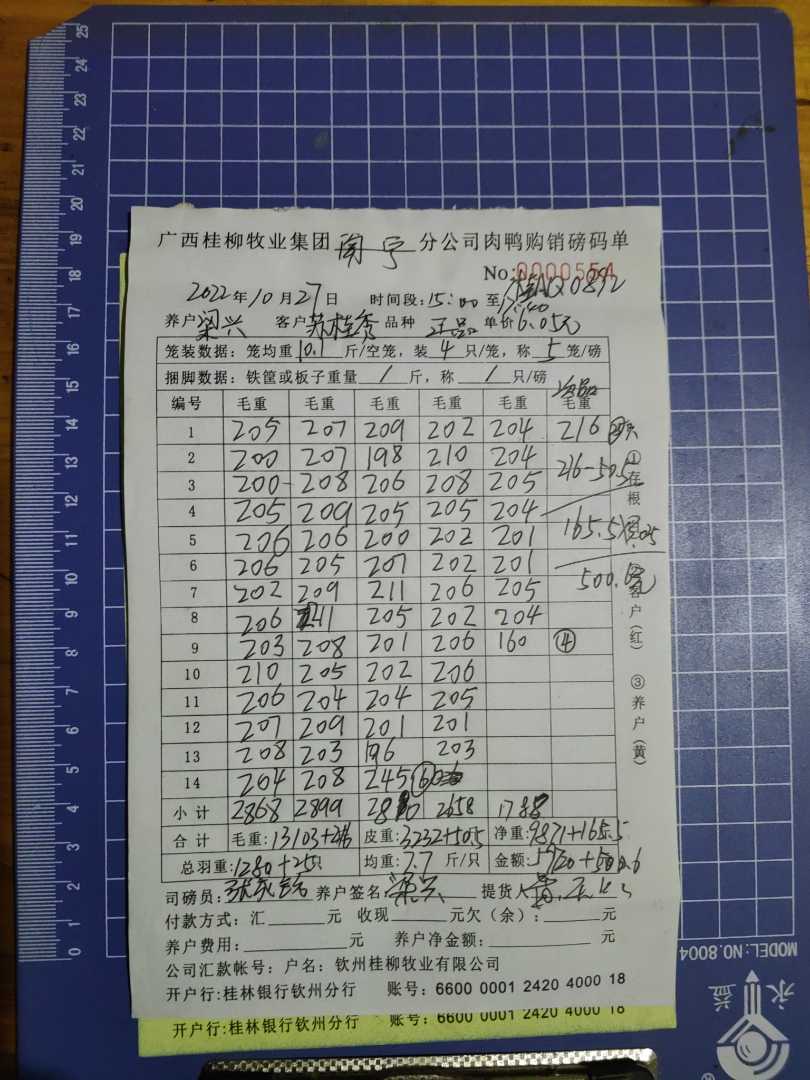 广西桂柳牧业集团南宁分公司肉鸭购销磅码单
No:0000554
2022年10月27日 时间段:15:00至
养户梁兴 客户苏桂秀 品种 正品 单价6.05元
笼装数据:笼均重10.1斤/空笼,装4只/笼,称5笼/磅
捆脚数据:铁筐或板子重量/斤,称/只/磅
编号 毛重 毛重 毛重 毛重 毛重 毛重
1 205 207 209 202 204 216
2 200 207 198 210 204
216-50.5
3 200 208 206 208 205
4 205 209 205 205 204
165.5
5 206 206 200 202 201
6 206 205 207 202 201
500.6元
7 202 209 211 206 205
8 206 211 205 202 204
9 203 208 201 206 160 ④
10 210 205 202 206
11 206 204 204 205
12 207 209 201 201
13 208 203 196 203
14 204 208 245 ⑥
小计 2868 2899 2658
合计 毛重:13103+216 皮重:3232+50.5 净重:9871+165.5
总羽重:1280+25只 均重:7.7斤/只 金额:
司磅员: 养户签名:梁兴 提货人
付款方式:汇____元 收现____元欠(余):____元
养户费用:____元 养户净金额:____元
公司汇款帐号:户名:钦州桂柳牧业有限公司
开户行:桂林银行钦州分行 账号:6600 0001 2420 4000 18
开户行:桂林银行钦州分行 账号:6600 0001 2420 4000 18
①存根
②客户(红)
③养户(黄)
25
24
23
22
21
20
19
18
17
16
15
14
13
12
11
10
9
8
7
6
5
4
3
2
1
0
MODEL:NO.8004
永益